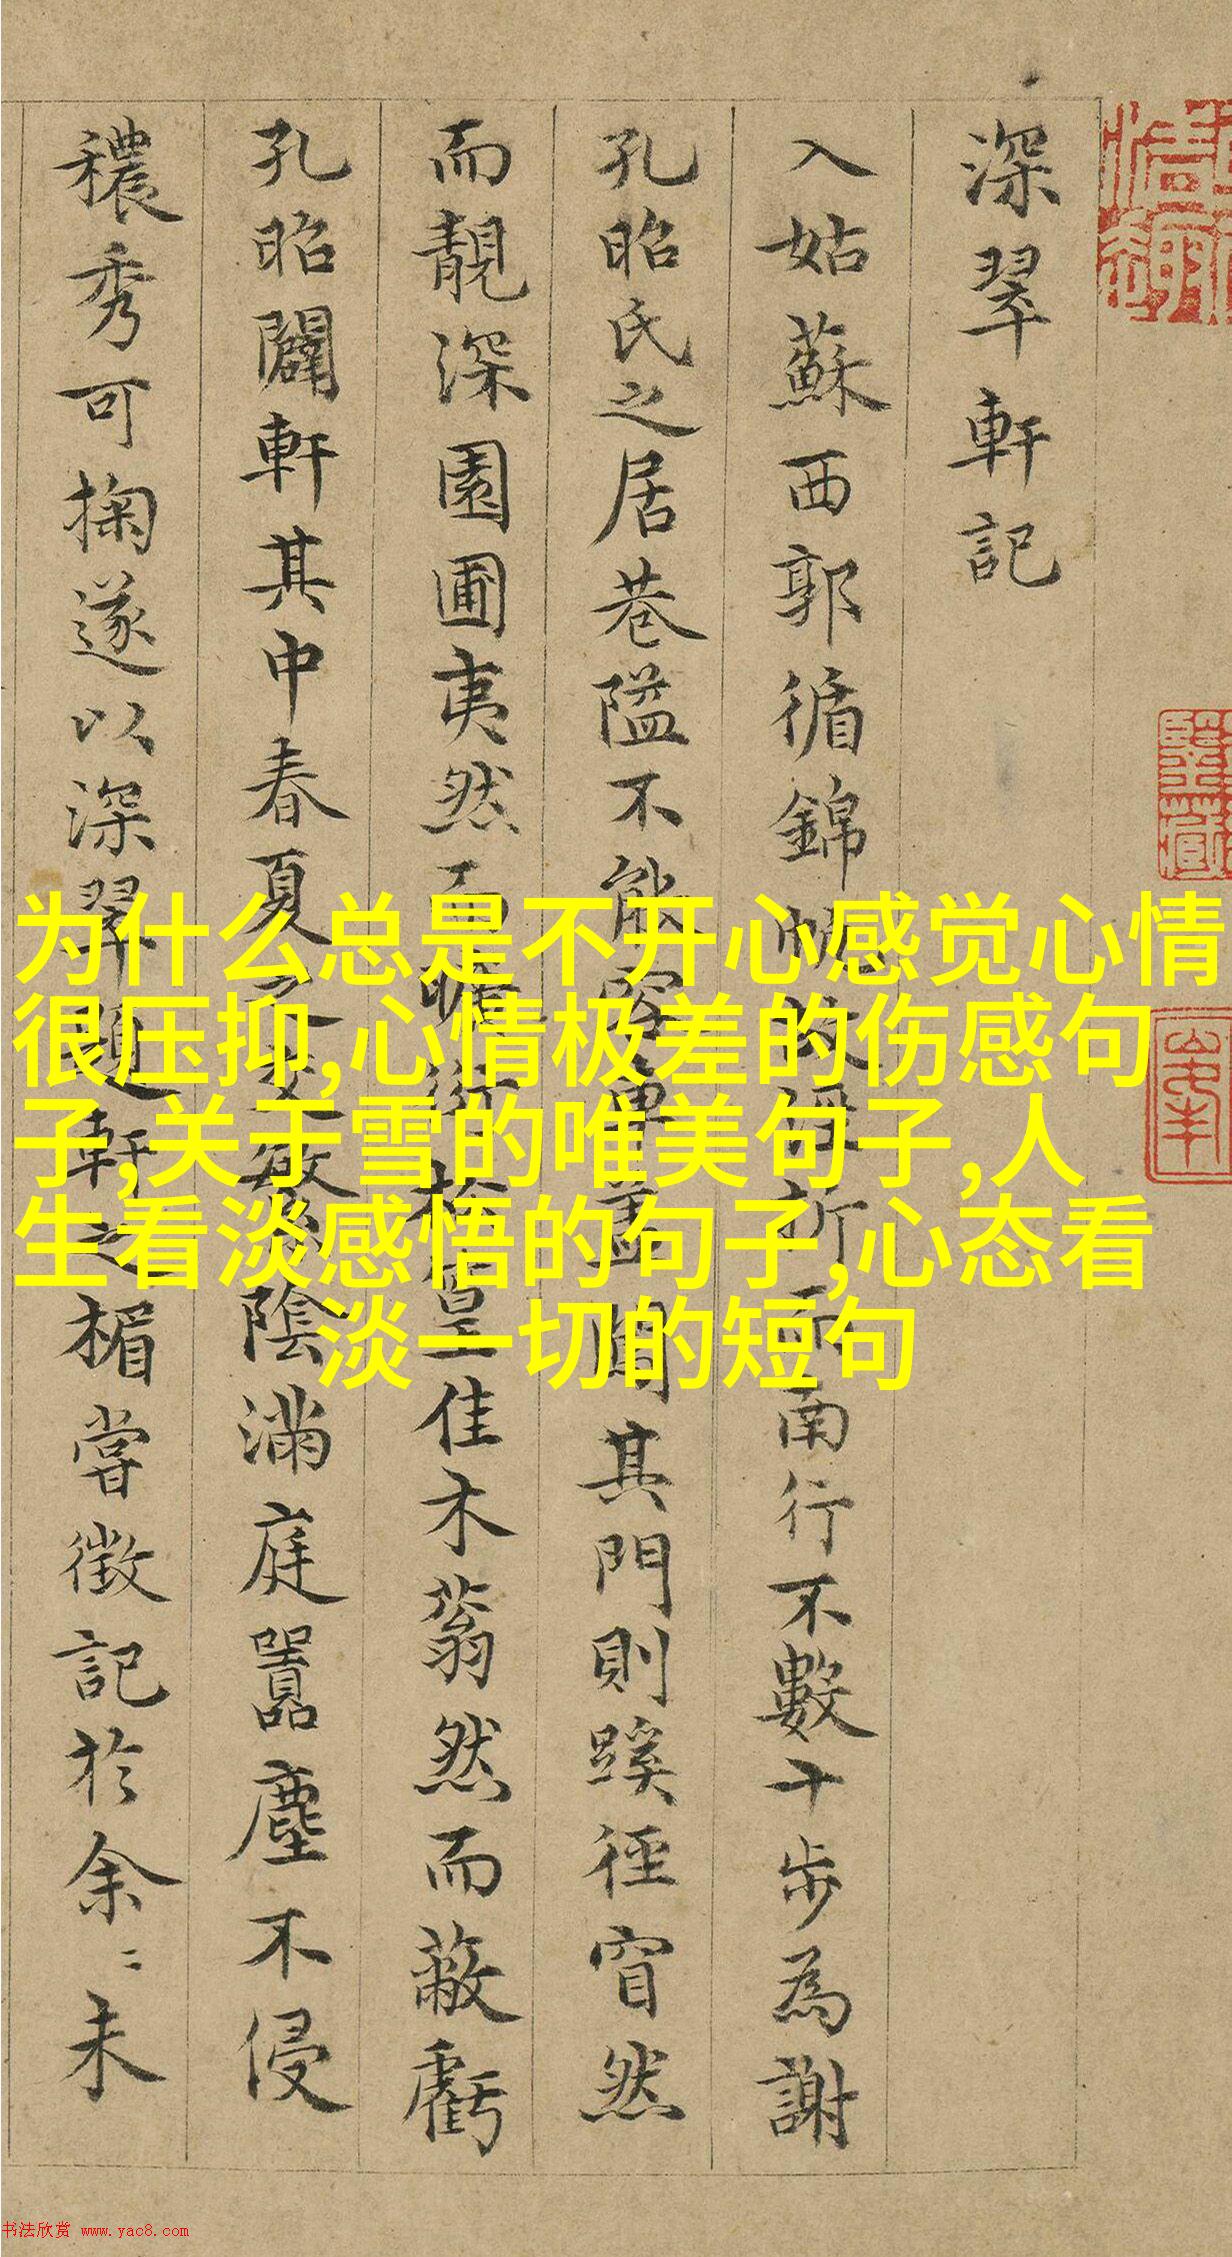 深翠軒記
入姑蘇西郭循錦帆故涇折而南行不數十步為謝
孔昭氏之居巷隘不能容車馬闖其門則蹊徑窅然
而靚深園圃夷然而曠衍梧篁佳木蓊然而蔽虧
孔昭闢軒其中春夏之交繁陰滿庭囂塵不侵
穠秀可掬遂以深翠題軒之楣嘗徵記於余〻未
为什么总是不开心感觉心情
很压抑,心情极差的伤感句
子,关于雪的唯美句子,人
生看淡感悟的句子,心态看
淡一切的短句
书法欣赏 www.yac8.com